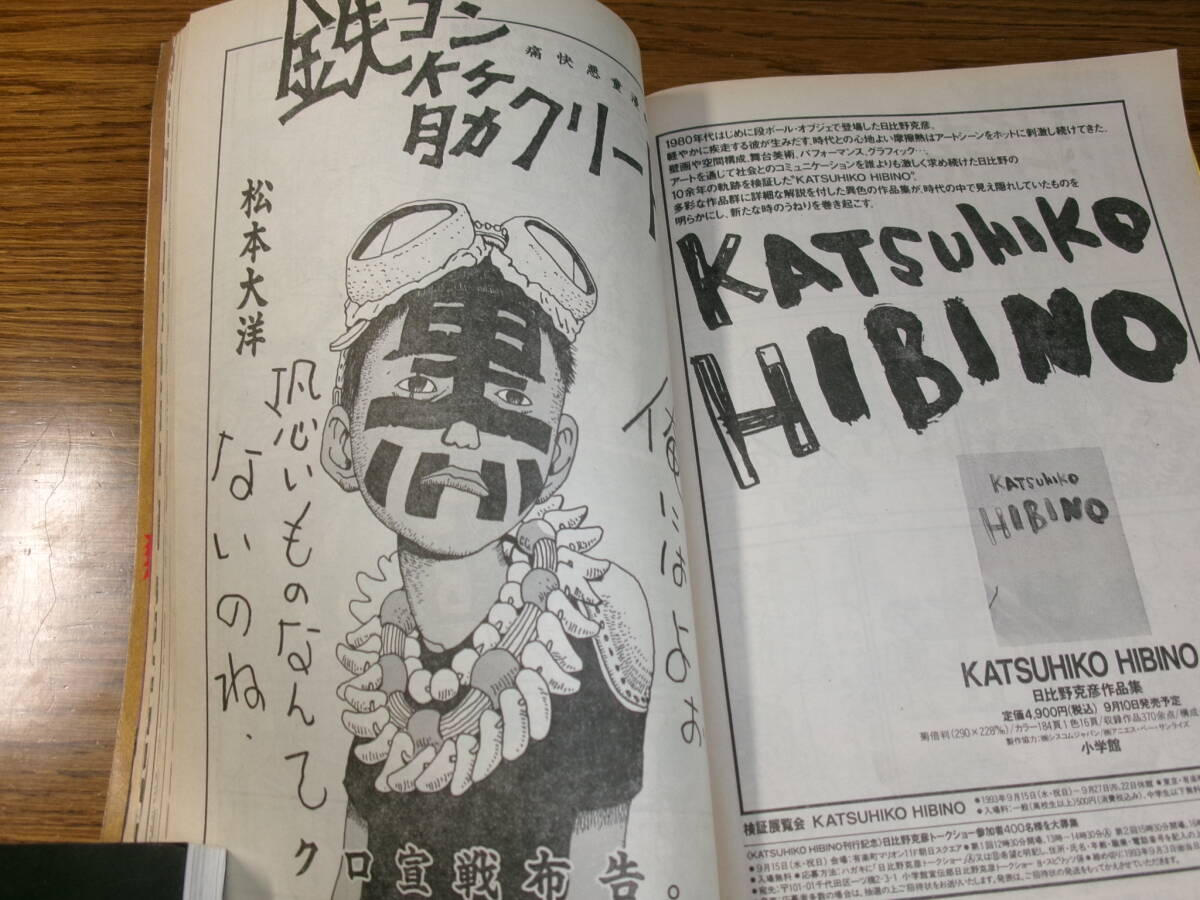 鉄コン筋クリート
痛快悪童
松本大洋
黒
俺には
恐いものなんて
ないのね、
クロ宣戦布告。
1980年代はじめに段ボール・オブジェで登場した日比野克彦。
軽やかに疾走する彼が生みだす、時代との心地よい摩擦熱はアートシーンをホットに刺激し続けてきた。
壁画や空間構成、舞台美術、パフォーマンス、グラフィック…。
アートを通じて社会とのコミュニケーションを誰よりも激しく求め続けた日比野の
10余年の軌跡を検証した"KATSUHIKO HIBINO"。
多彩な作品群に詳細な解説を付した異色の作品集が、時代の中で見え隠れしていたものを
明らかにし、新たな時のうねりを巻き起こす。
KATSUHIKO
HIBINO
KATSUHIKO
HIBINO
KATSUHIKO HIBINO
日比野克彦作品集
定価4,900円(税込) 9月10日発売予定
菊倍判(290×228㎜)/カラー184頁1色16頁/収録作品370余点/構成
製作協力:㈱シスコムジャパン/㈱アニエス・ベー・サンライズ
小学館
検証展覧会 KATSUHIKO HIBINO
●1993年9月15日(水・祝日)~9月27日(月)、22日休館 ●東京・有楽
●入場料:一般(高校生以上)500円(消費税込み)、中学生以下無料
《KATSUHIKO HIBINO刊行記念》日比野克彦トークショー参加者400名様を大募集
●9月15日(水・祝日) 会場:有楽町マリオン11F朝日スクエア ●第1回12時30分開場、13時~14時30分Ⓐ 第2回15時30分開場、16時
●入場無料 ●応募方法:ハガキに「日比野克彦トークショーⒶ又は
●宛先:〒101-01千代田区一ツ橋2-3-1 小学館宣伝部日比野克彦トークショー